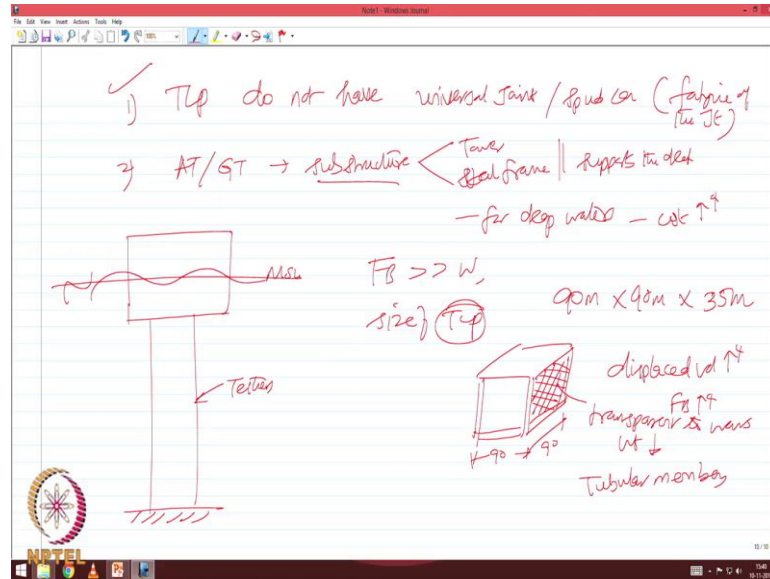 Note1 - Windows Journal
File Edit View Insert Actions Tools Help
1) TLP do not have universal Joint / spud can (fatigue of the Jt)
2) AT/GT → substructure
Tower
steel frame
supports the deck
- for deep waters - cost ↑
MSL
FB >> W,
size } TLP
90m x 90m x 35m
Tethers
displaced vol ↑
FB ↑
transparent to waves
wt ↓
90
90
Tubular members
NPTEL
13/10
15:40